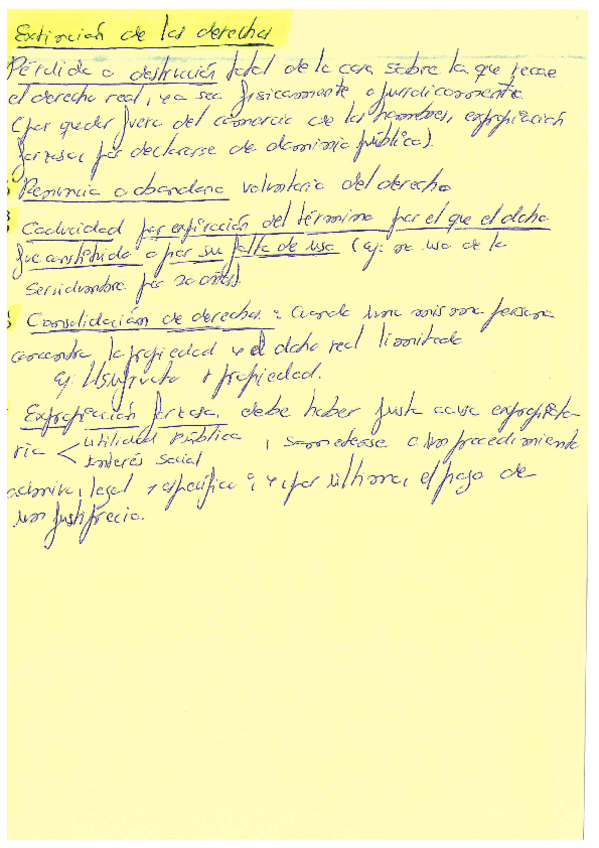 Extinción de los derechos
Pérdida o destrucción total de la cosa sobre la que recae
el derecho real, ya sea físicamente o jurídicamente
(por quedar fuera del comercio de los hombres, expropiación
forzosa, por declararse de dominio público).
Renuncia o abandono voluntario del derecho
Caducidad por expiración del término por el que el dcho
fue constituido o por su falta de uso (ej: no uso de la
servidumbre por 20 años).
Consolidación de derechos: Cuando una misma persona
concentra la propiedad y el dcho real limitado
Ej: Usufructo + propiedad.
Expropiación forzosa, debe haber justa causa expropiato
ria < utilidad pública , someterse a un procedimiento
interés social
admivo, legal y específico; y, por último, el pago de
un justiprecio.